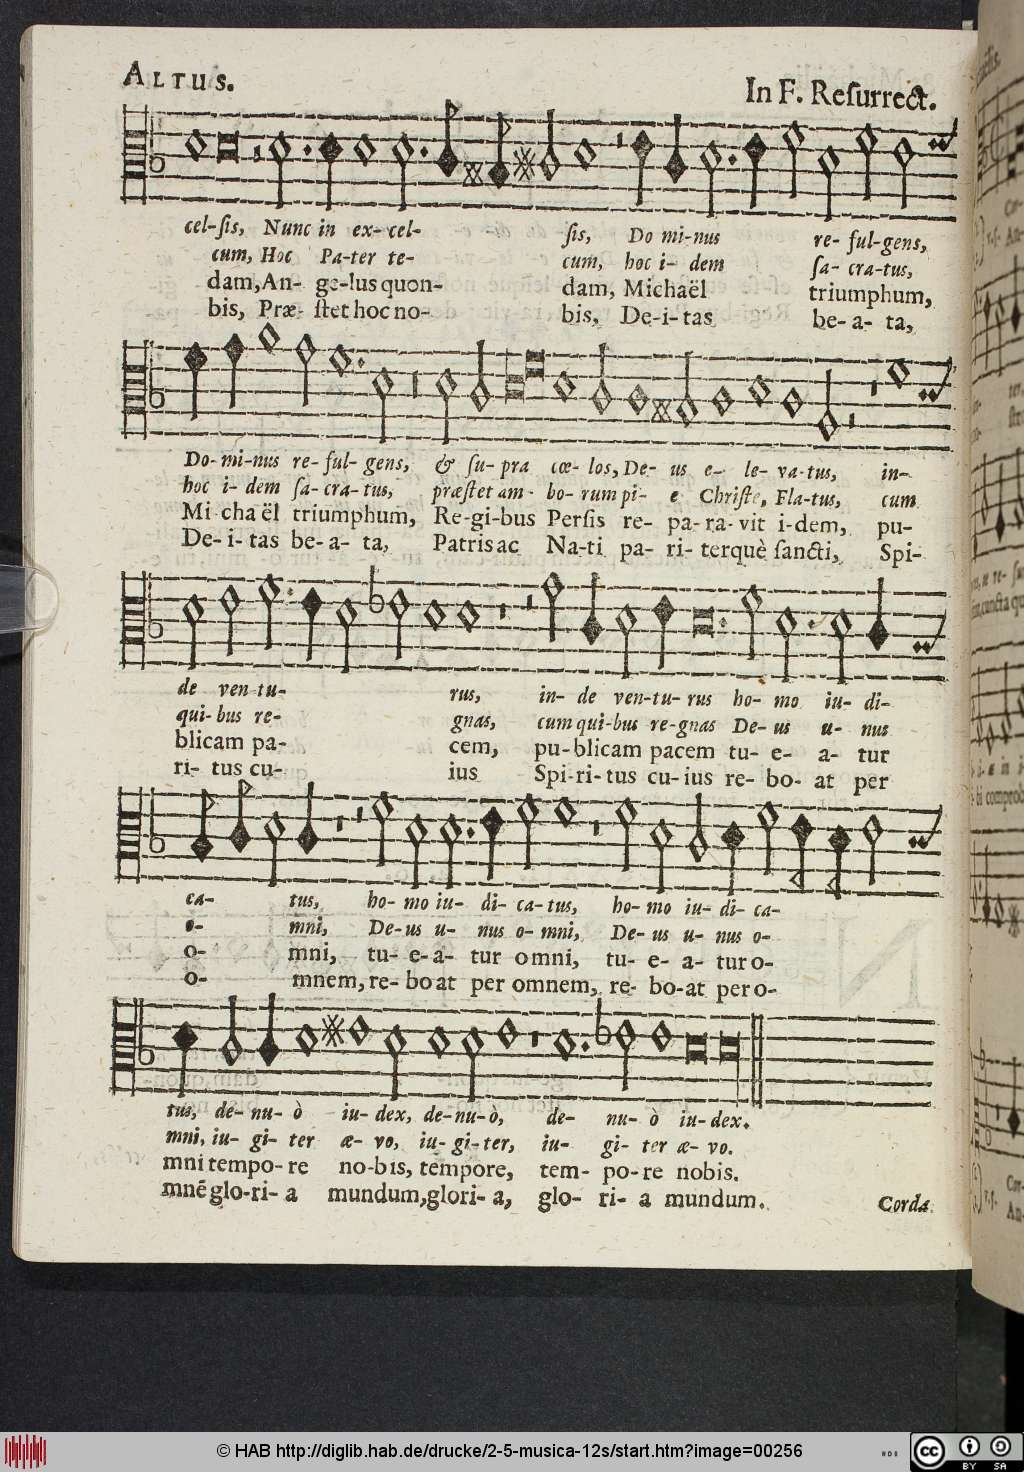 ALTUS.
In F. Reſurrect.
cel-ſis, Nunc in ex-cel- ſis, Do mi-nus re- ful-gens,
cum, Hoc Pa-ter te- cum, hoc i- dem ſa- cra-tus,
dam, An- ge-lus quon- dam, Michaël triumphum,
bis, Præ- ſtet hoc no- bis, De-i-tas be-a- ta,
Do-mi-nus re-ful- gens, & ſu- pra cœ- los, De- us e- le- va-tus, in-
hoc i- dem ſa- cra-tus, præſtet am- bo- rum pi- e Chriſte, Fla-tus, cum
Mi cha ël triumphum, Re-gi-bus Perſis re- pa-ra-vit i-dem, pu-
De-i-tas be-a- ta, Patris ac Na-ti pa- ri- terquè ſancti, Spi-
de ven-tu- rus, in- de ven-tu- rus ho- mo iu- di-
qui-bus re- gnas, cum qui-bus re-gnas De- us u- nus
blicam pa- cem, pu-blicam pacem tu- e- a- tur
ri- tus cu- ius Spi-ri-tus cu-ius re- bo- at per
ca- tus, ho- mo iu- di- ca-tus, ho- mo iu- di- ca-
o- mni, De-us u- nus o- mni, De- us u- nus o-
o- mni, tu- e-a- tur omni, tu- e- a- tur o-
o- mnem, re-boat per omnem, re- bo-at per o-
tus, de- nu- ò iu- dex, de-nu-ò, de- nu- ò iu-dex.
mni, iu- gi- ter æ- vo, iu-gi-ter, iu- gi- ter æ- vo.
mni tempo-re no-bis, tempore, tem- po-re nobis.
mnē glo-ri- a mundum, glori-a, glo- ri- a mundum.
Corda
© HAB http://diglib.hab.de/drucke/2-5-musica-12s/start.htm?image=00256
cc BY SA